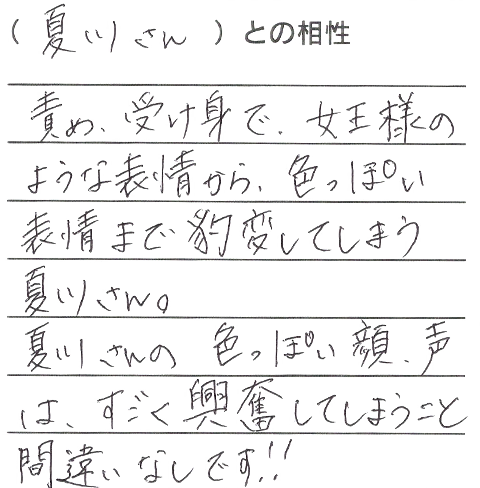 （夏川さん）との相性
責め、受け身で、女王様の
ような表情から、色っぽい
表情まで豹変してしまう
夏川さん。
夏川さんの色っぽい顔、声
は、すごく興奮してしまうこと
間違いなしです!!